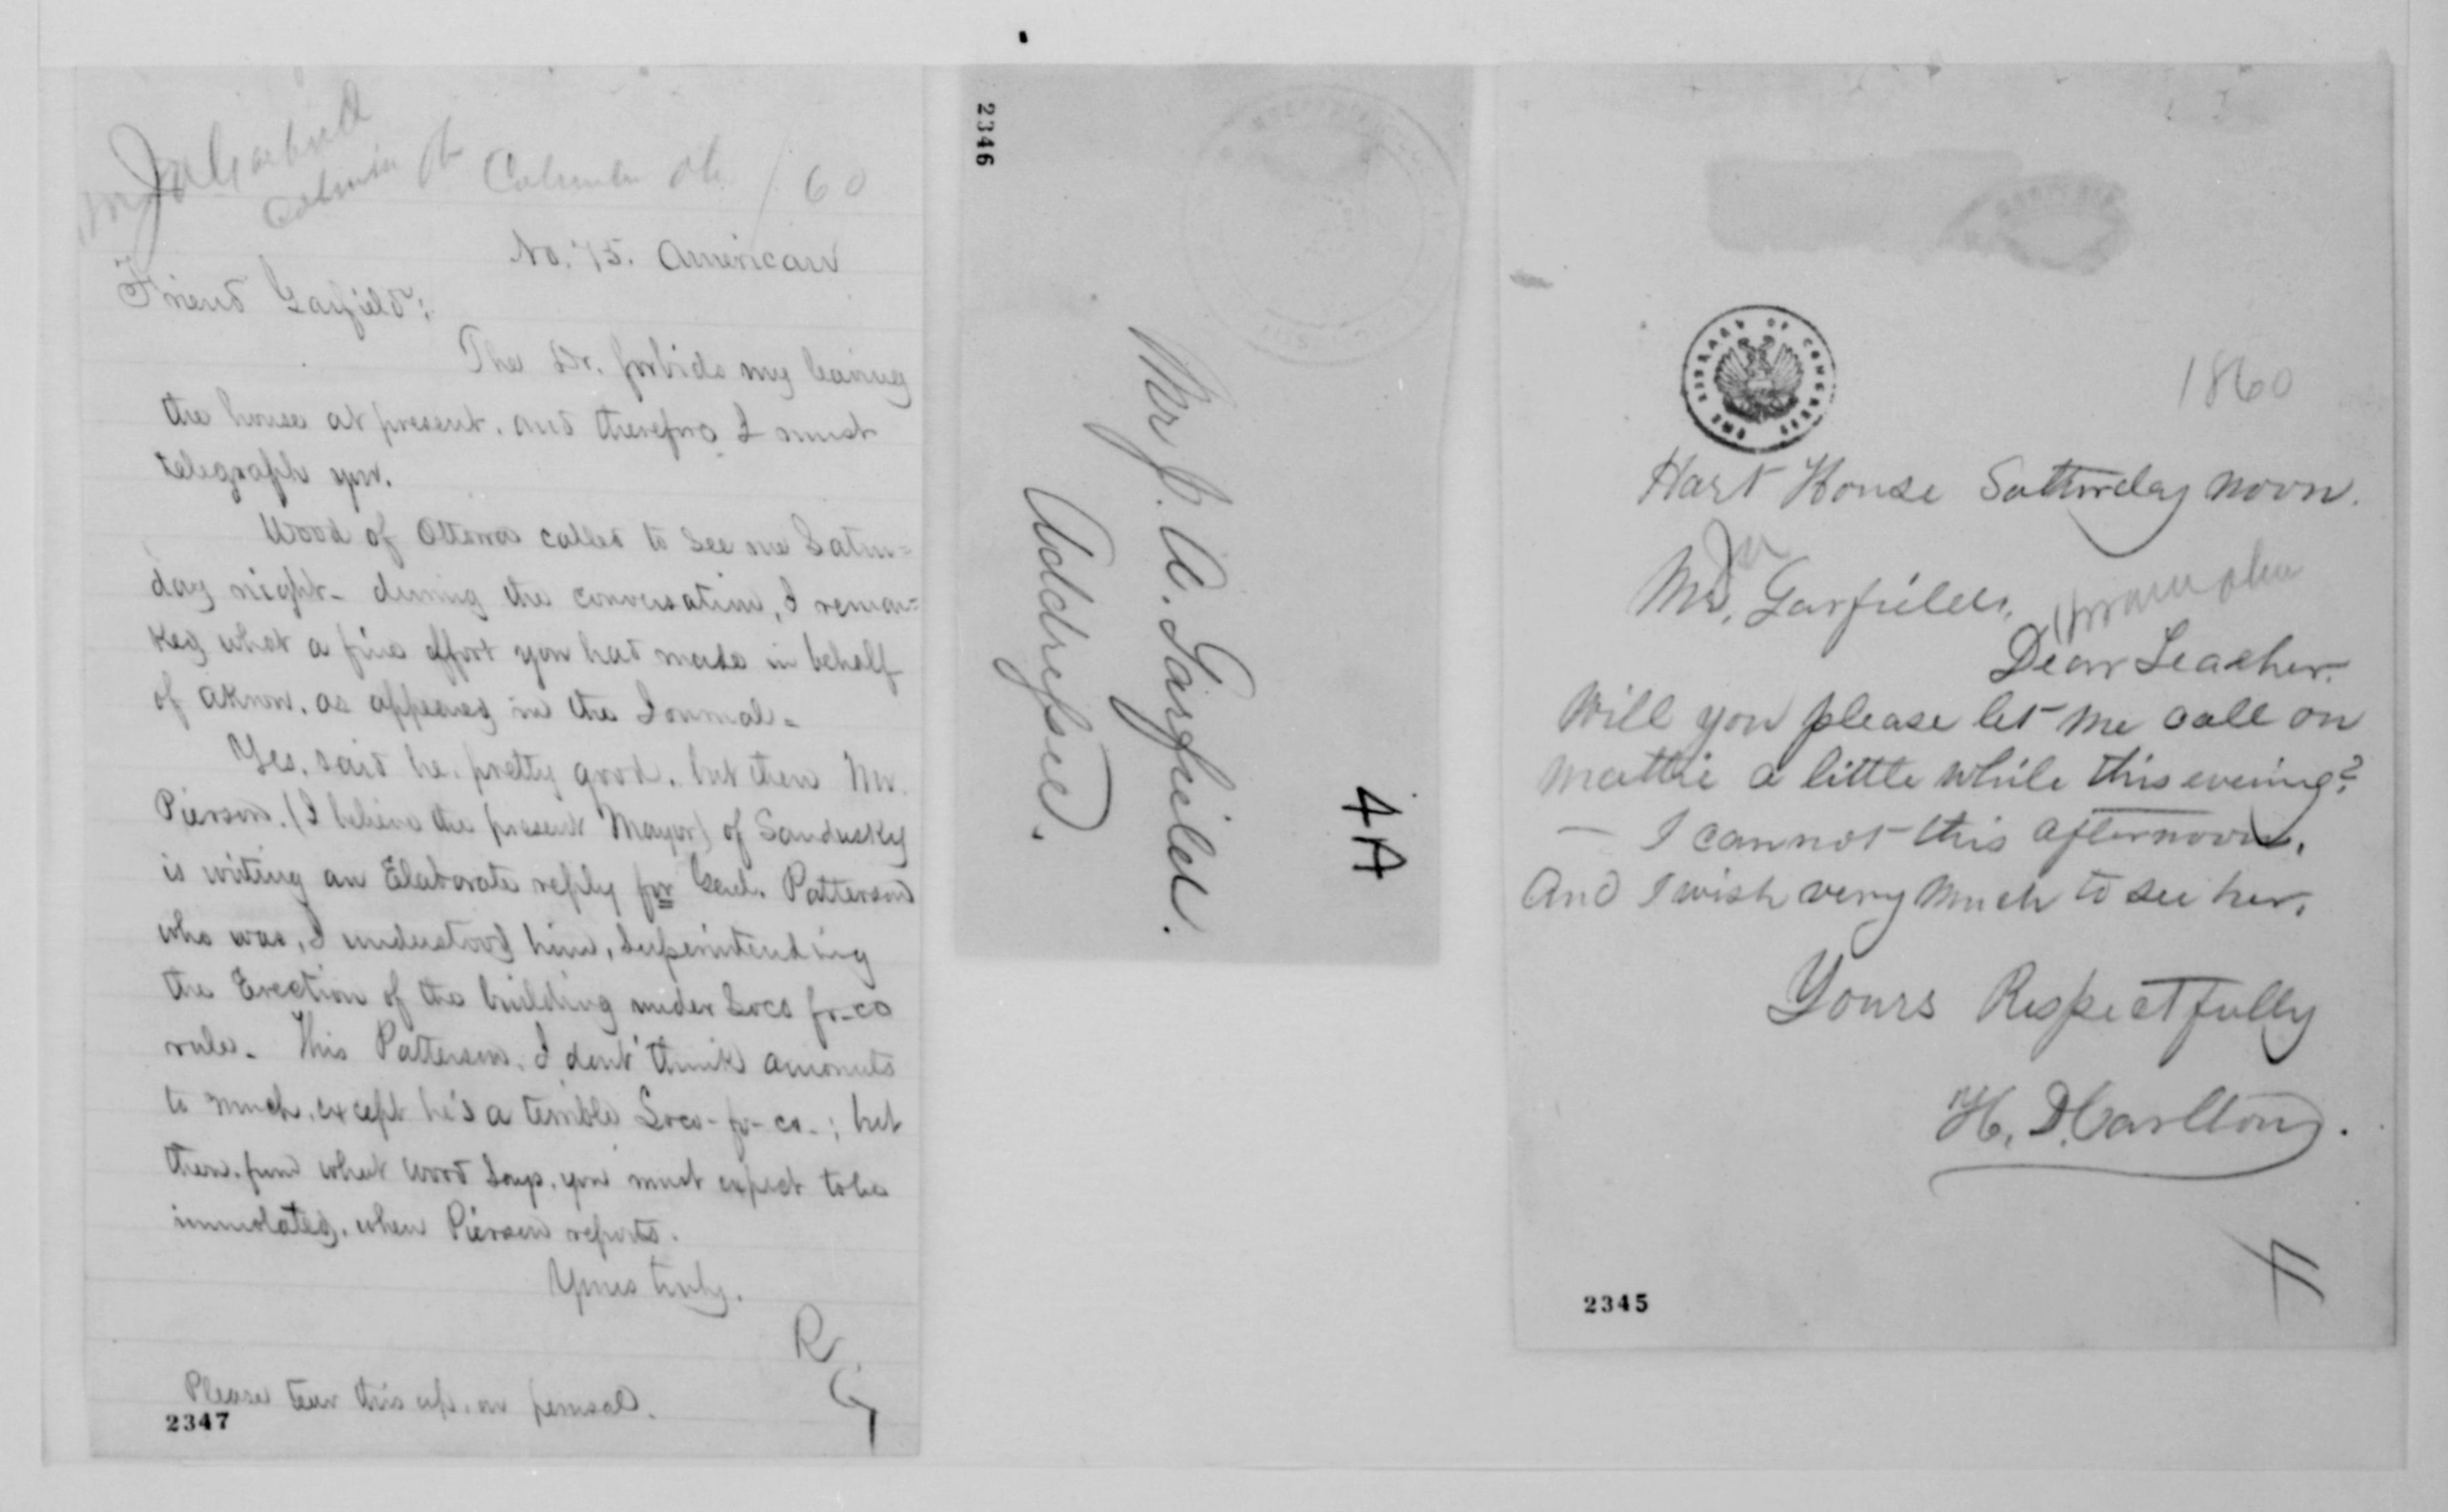 Columbus Oh / 60
No. 75. American
Friend Garfield;
The Dr. forbids my leaving
the house at present. and therefore I must
telegraph you.
Wood of Ottawa called to see me Satur=
day night - during the conversation, I remar=
ked what a fine effort you had made in behalf
of as appeared in the Journal -
Yes, said he, pretty good. but then Mr.
Pierson. (I believe the present Mayor) of Sandusky
is writing an Elaborate reply for Genl. Patterson
who was, I understood him, superintending
the Erection of the building under Loco fo-co
rule - This Patterson, I dont think amounts
to much, except he's a terrible Loco-fo-co - ; but
then, from what Wood says, you must expect to be
immolated, when Pierson reports.
Yours truly.
R
G
Please tear this up, on perusal.
2347
2346
Mr J. A. Garfield.
Addressed.
4A
THE LIBRARY OF CONGRESS
1860
Hart House Satturday noon.
Mr. Garfield,
Dear Teacher.
Will you please let me call on
Mattie a little while this evening?
— I cannot this afternoon.
And I wish very much to see her.
Yours Respectfully
H. D. Carlton.
4
2345